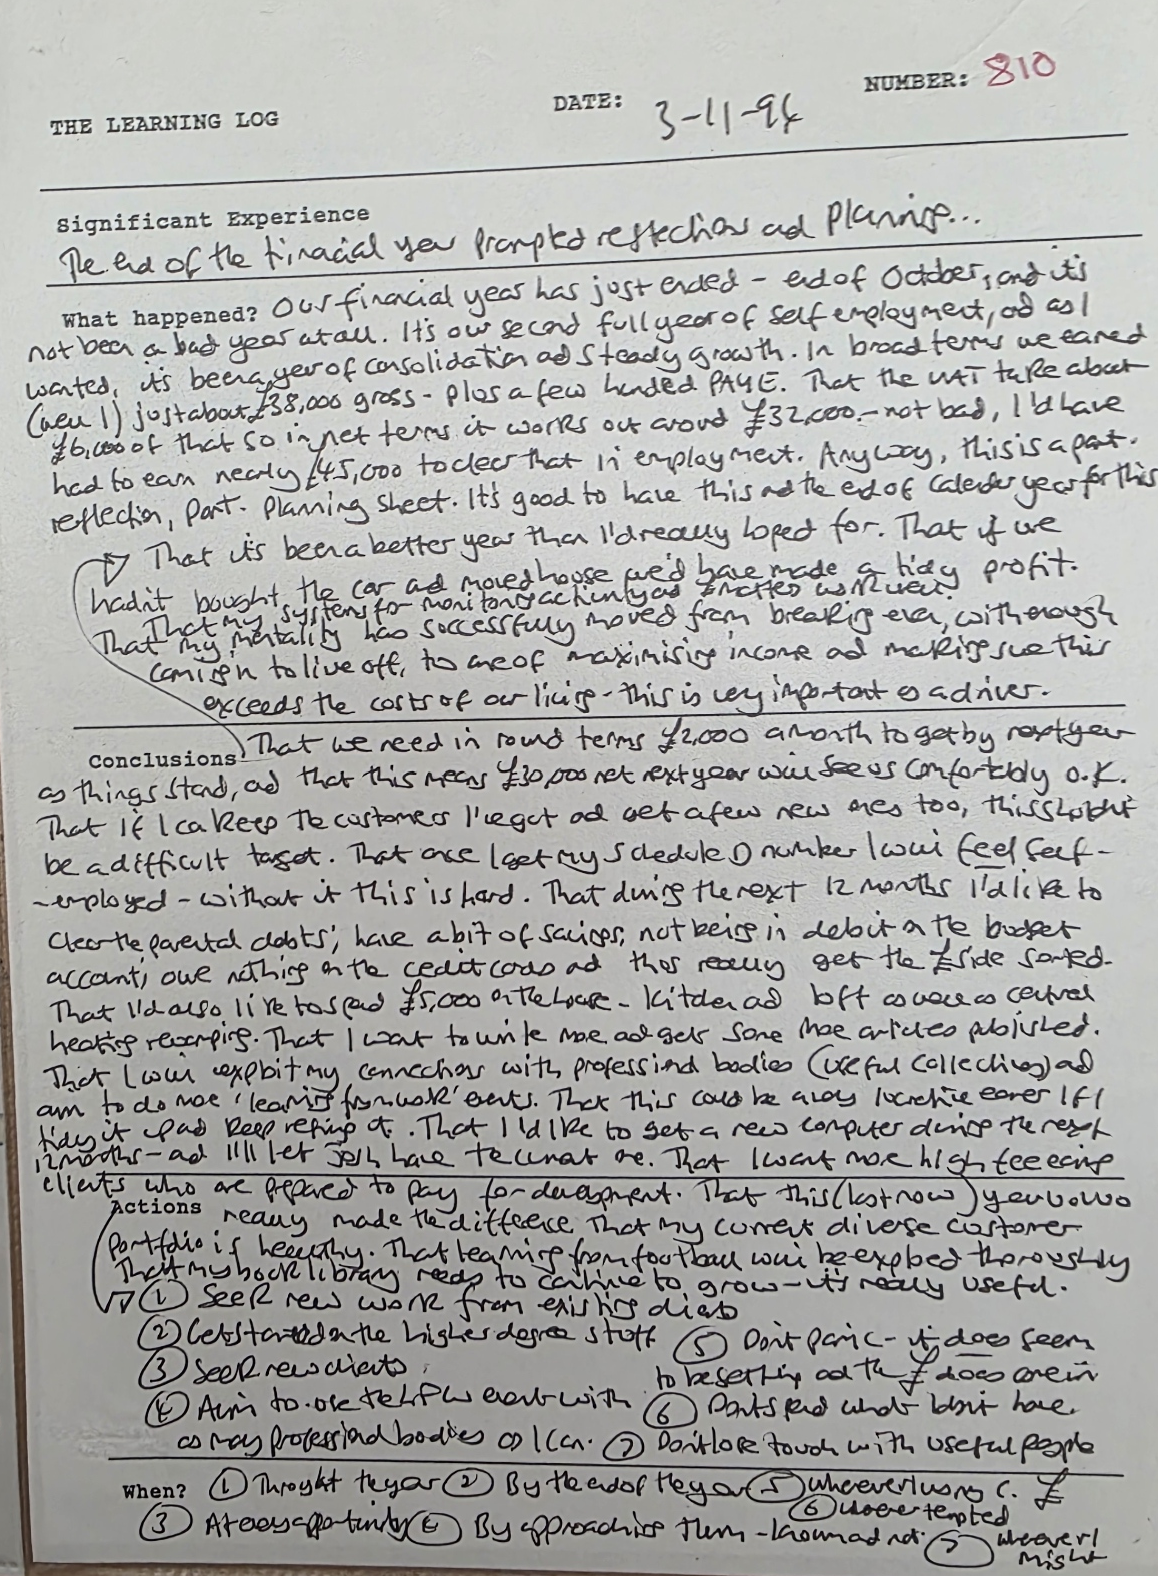 THE LEARNING LOG DATE: 3-11-94 NUMBER: 810
Significant Experience
The end of the financial year prompted reflections and planning...
What happened? Our financial year has just ended - end of October, and it's
not been a bad year at all. It's our second full year of self employment, and as I
wanted, it's been a year of consolidation and steady growth. In broad terms we earned
(well I) just about £38,000 gross - plus a few hundred PAYE. That the VAT take about
£6,000 of that so in net terms it works out around £32,000 - not bad, I'd have
had to earn nearly £45,000 to clear that in employment. Anyway, this is a part-
reflection, part-planning sheet. It's good to have this and the end of calendar year for this
That it's been a better year than I'd really hoped for. That if we
hadn't bought the car and moved house we'd have made a tidy profit.
That my systems for monitoring activity and £ matters work well.
That my mentality has successfully moved from breaking even, with enough
coming in to live off, to one of maximising income and making sure this
exceeds the costs of our living - this is very important as a driver.
Conclusions That we need in round terms £2,000 a month to get by next year
as things stand, and that this means £30,000 net next year will see us comfortably O.K.
That if I can keep the customers I've got and get a few new ones too, this shouldn't
be a difficult target. That once I get my Schedule D number I will feel self-
-employed - without it this is hard. That during the next 12 months I'd like to
clear the 'parental debts', have a bit of savings, not being in debit on the budget
account, owe nothing on the credit cards and thus really get the £ side sorted.
That I'd also like to spend £5,000 on the house - kitchen and loft as well as central
heating revamping. That I want to write more and get some more articles published.
That I will exploit my connections with professional bodies (useful collectives) and
aim to do more 'learning from work' events. That this could be a very lucrative earner if I
tidy it up and keep refining it. That I'd like to get a new computer during the next
12 months - and I'll let Josh have the current one. That I want more high fee earning
clients who are prepared to pay for development. That this (last now) year
Actions really made the difference. That my current diverse customer
portfolio is healthy. That learning from football will be explored thoroughly
That my book library needs to continue to grow - it's really useful.
① Seek new work from existing clients
② Get started on the higher degree stuff ⑤ Don't panic - it does seem
③ Seek new clients to be settling and the £ does come in
④ Aim to use the LFW event with ⑥ Don't spend what I don't have.
as many professional bodies as I can. ⑦ Don't lose touch with useful people
When? ① Throughout the year ② By the end of the year ⑤ Whenever I worry c. £
⑥ Whenever tempted
③ At every opportunity ④ By approaching them - known and not. ⑦ Whenever I
might